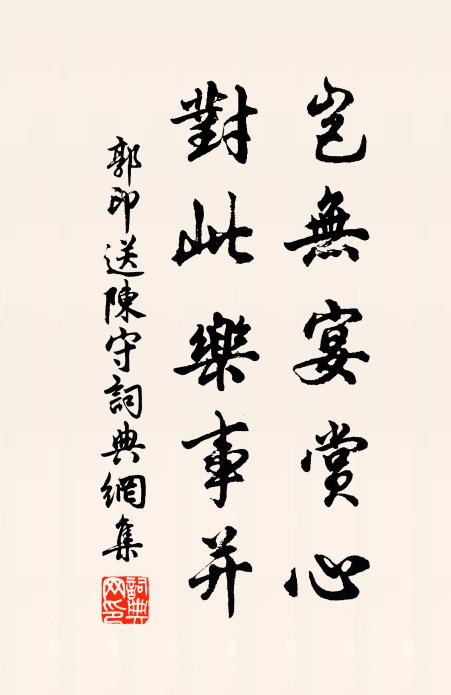 豈無宴賞心
對此樂事并
郭印送陳守詞典網集
詞典网印